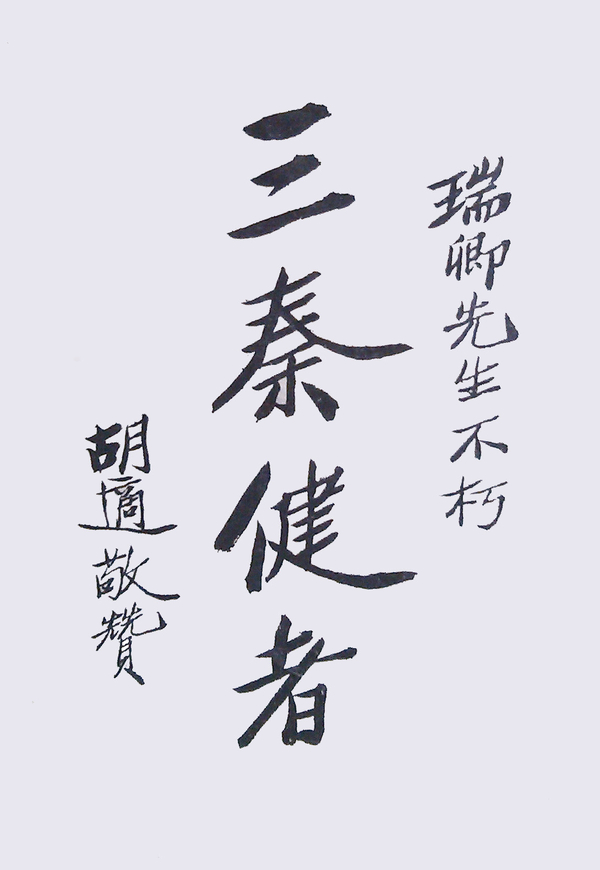 瑞卿先生不朽
三秦健者
胡適敬贊